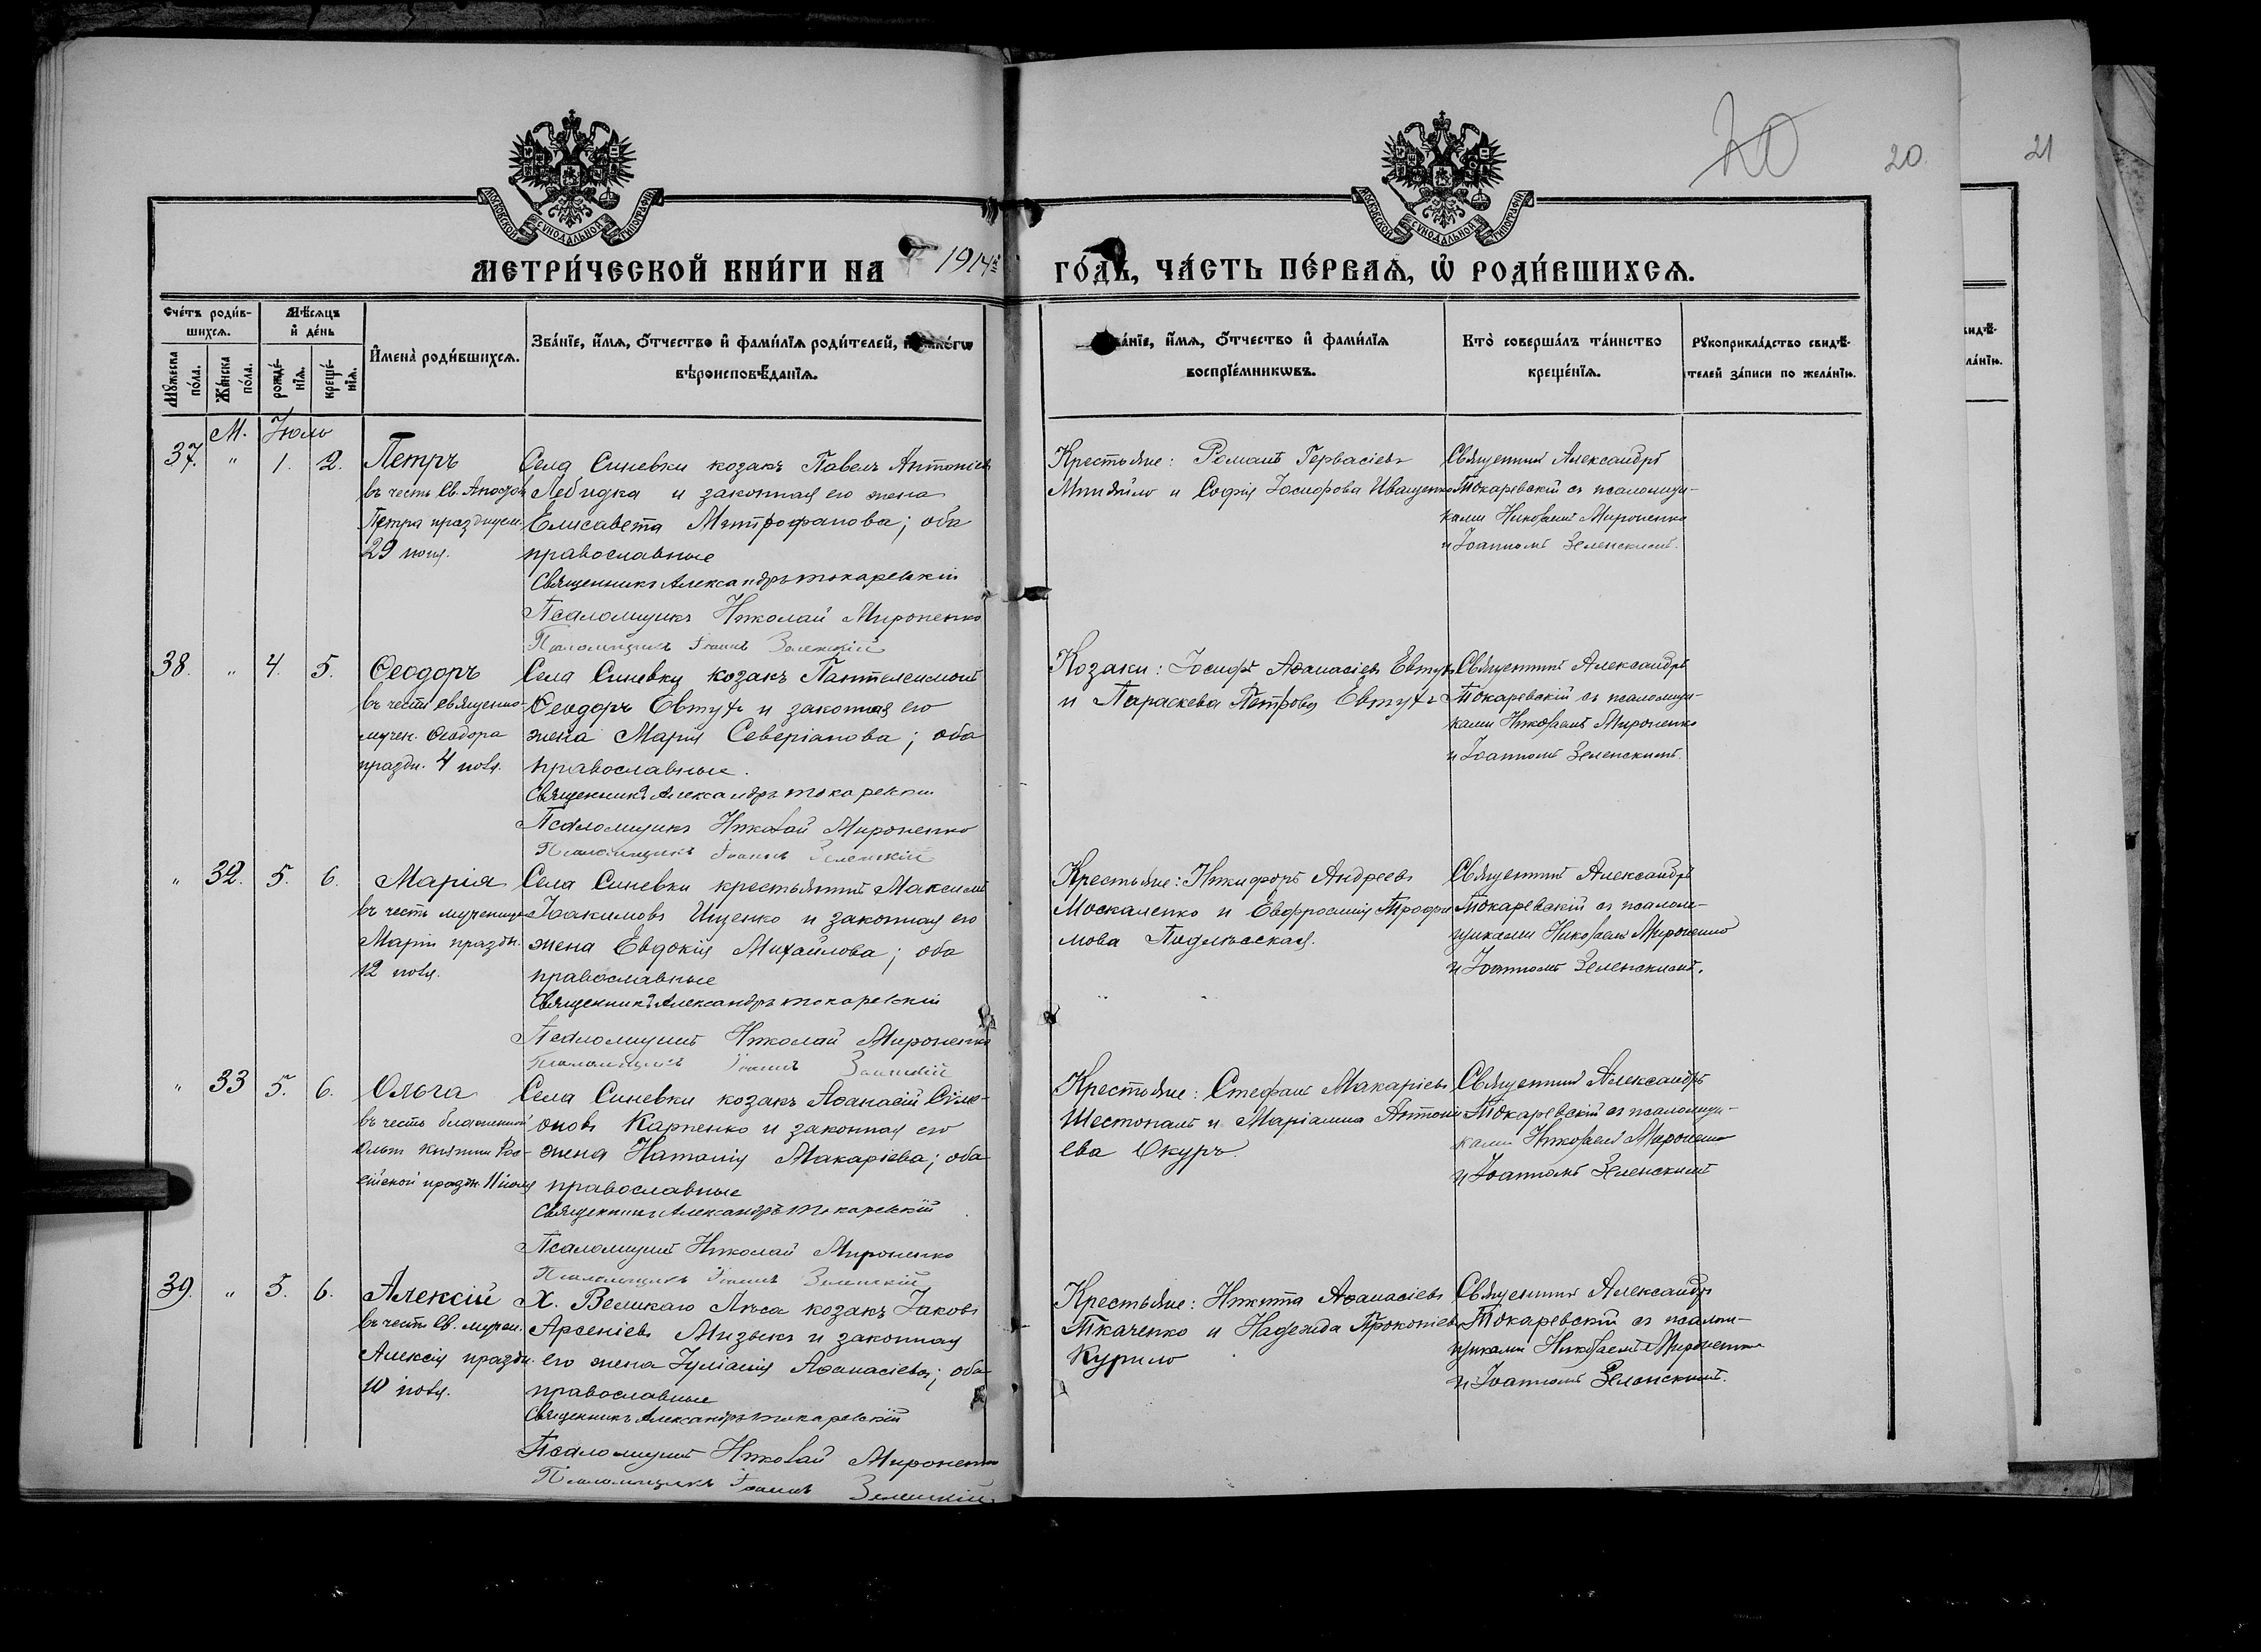 20
20
21
МОСКОВСКОЙ СУНОДАЛЬНОЙ ТИПОГРАФІИ
МОСКОВСКОЙ СУНОДАЛЬНОЙ ТИПОГРАФІИ
МЕТРИ́ЧЕСКОЙ КНИ́ГИ НА 1914й ГО́ДЪ, ЧА́СТЬ ПЕ́РВАѦ, Ѡ РОДИ́ВШИХСѦ.
Сче́тъ роди́в-
шихсѧ.
Мѣ́сѧцъ
и де́нь
Мꙋ́жеска по́ла.
Же́нска по́ла.
рожде́-
нїѧ.
креще́-
нїѧ.
И҆мена̀ роди́вшихсѧ.
Зва́нїе, и҆́мѧ, о҆́тчество и҆ фами́лїѧ роди́телей,
вѣроисповѣ́данїѧ.
и҆́мѧ, о҆́тчество и҆ фами́лїѧ
воспрїе́мникѡвъ.
Кто̀ соверша́лъ та́инство
креще́нїѧ.
Рꙋкоприкла́дство свидѣ́-
телей за́писи по жела́нїю.
М. Іюль
37. " 1. 2. Петръ
въ честь Св. Апостол.
Петра празднуем.
29 іюня.
Села Синевки козакъ Павелъ Антоніевъ
Лебидка и законная его жена
Елисавета Митрофанова; оба
православные
Священникъ Александръ Токаревскій
Псаломщикъ Николай Мироненко
Псаломщикъ Іоаннъ Зеленскій
Крестьяне: Романъ Гервасіевъ
и Софія Іосифова Иващенко
Священникъ Александръ
Токаревскій съ псаломщи-
ками Николаемъ Мироненко
и Іоанномъ Зеленскимъ.
38. " 4. 5. Ѳеодоръ
въ честь священно-
мучен. Ѳеодора
праздн. 4 іюля.
Села Синевки козакъ Пантелеимонъ
Ѳеодоръ Евтухъ и законная его
жена Марія Северіанова; оба
православные.
Священникъ Александръ Токаревскій
Псаломщикъ Николай Мироненко
Псаломщикъ Іоаннъ Зеленскій
Козаки: Іосифъ Аѳанасіевъ Евтухъ
и Параскева Петрова Евтухъ
Священникъ Александръ
Токаревскій съ псаломщи-
ками Николаемъ Мироненко
и Іоанномъ Зеленскимъ.
" 32. 5. 6. Марія
въ честь мученицы
Маріи праздн.
12 іюля.
Села Синевки крестьянинъ Максимъ
Іоакимовъ Ищенко и законная его
жена Евдокія Михайлова; оба
православные
Священникъ Александръ Токаревскій
Псаломщикъ Николай Мироненко
Псаломщикъ Іоаннъ Зеленскій
Крестьяне: Никифоръ Андреевъ
Москаленко и Евфросинія Трофи-
мова Подлѣсская.
Священникъ Александръ
Токаревскій съ псалом-
щиками Николаемъ Мироненко
и Іоанномъ Зеленскимъ.
" 33 5. 6. Ольга
въ честь блаженной
Ольги княгини Рос-
сійской праздн. 11 іюля
Села Синевки козакъ Аѳанасій Симе-
оновъ Карпенко и законная его
жена Наталія Макаріева; оба
православные
Священникъ Александръ Токаревскій
Псаломщикъ Николай Мироненко
Псаломщикъ Іоаннъ Зеленскій
Крестьяне: Стефанъ Макаріевъ
Шестопалъ и Маріамна Антоні-
ева Окуръ.
Священникъ Александръ
Токаревскій съ псаломщи-
ками Николаемъ Мироненко
и Іоанномъ Зеленскимъ
39. " 5. 6. Алексій
въ честь св. мучен.
Алексія праздн.
10 іюля.
Х. Великаго Лѣса козакъ Іаковъ
Арсеніевъ Мизыкъ и законная
его жена Іуліанія Аѳанасіева; оба
православные
Священникъ Александръ Токаревскій
Псаломщикъ Николай Мироненко
Псаломщикъ Іоаннъ Зеленскій
Крестьяне: Никита Аѳанасіевъ
Ткаченко и Надежда Прокопіева
Курило
Священникъ Александръ
Токаревскій съ псалом-
щиками Николаемъ Мироненко
и Іоанномъ Зеленскимъ.